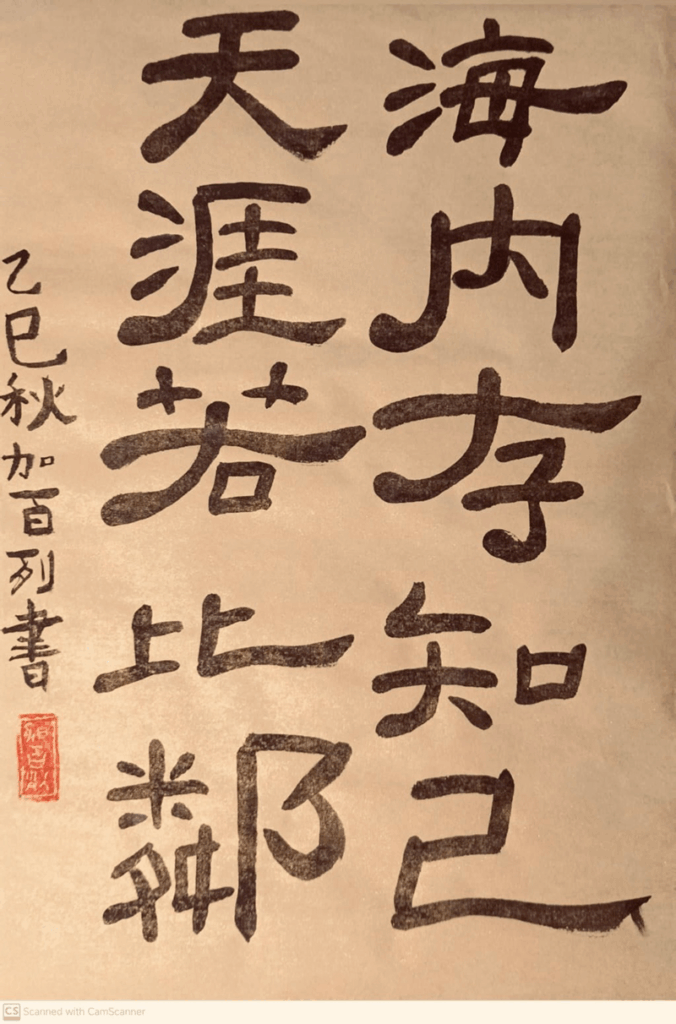 海内存知己
天涯若比鄰
乙巳秋加百列書
CS Scanned with CamScanner